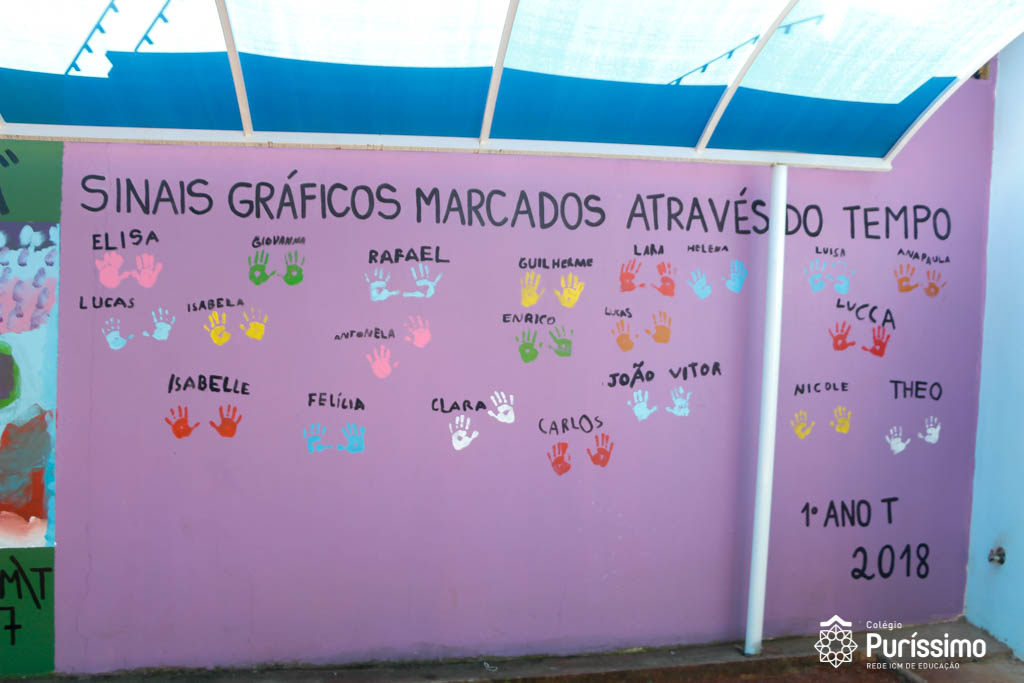 SINAIS GRÁFICOS MARCADOS ATRAVÉS DO TEMPO
ELISA
GIOVANNA
RAFAEL
GUILHERME
LARA
HELENA
LUISA
ANA PAULA
LUCAS
ISABELA
ANTONELA
ENRICO
LUCAS
LUCCA
ISABELLE
FELÍCIA
CLARA
CARLOS
JOÃO VITOR
NICOLE
THEO
1º ANO T
2018
M\T
7
Colégio
Puríssimo
REDE ICM DE EDUCAÇÃO